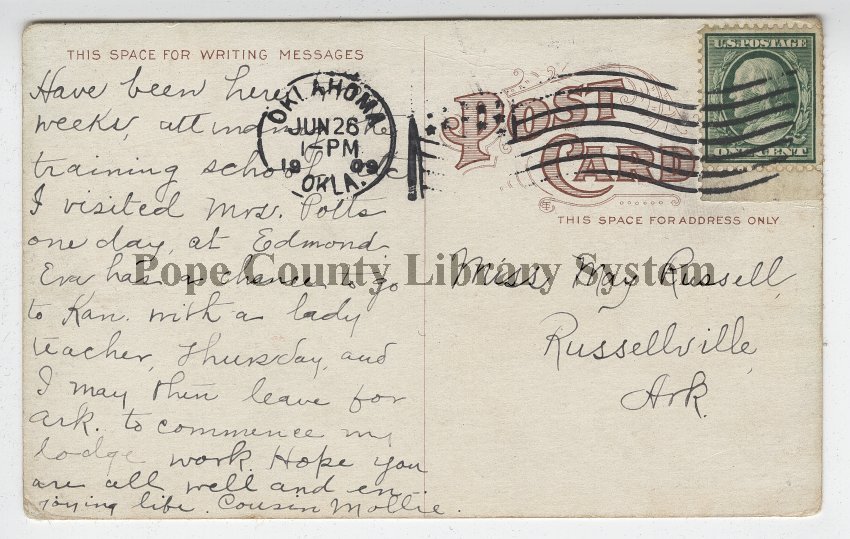 THIS SPACE FOR WRITING MESSAGES
Have been here
weeks, at
training school
I visited Mrs. Potts
one day, at Edmond
Eva has a chance to go
to Kan. with a lady
teacher, Thursday, and
I may then leave for
Ark. to commence my
lodge work. Hope you
are all well and en-
joying life. Cousin Mollie.
OKLAHOMA
JUN 26
1-PM
1909
OKLA.
POST CARD
U.S. POSTAGE
ONE CENT
THIS SPACE FOR ADDRESS ONLY
Miss, May Russell,
Russellville,
Ark.
Pope County Library System